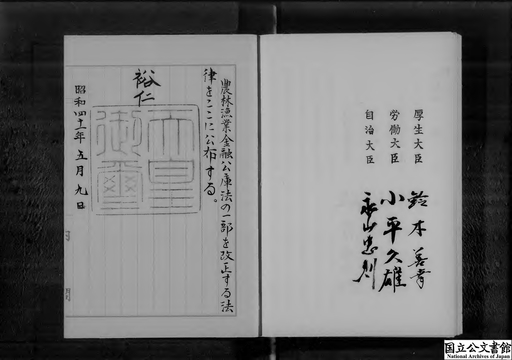 厚生大臣 鈴木善幸
労働大臣 小平久雄
自治大臣 永山忠則
農林漁業金融公庫法の一部を改正する法
律をここに公布する。
裕仁
天皇
御璽
昭和四十一年五月九日
国立公文書館
National Archives of Japan